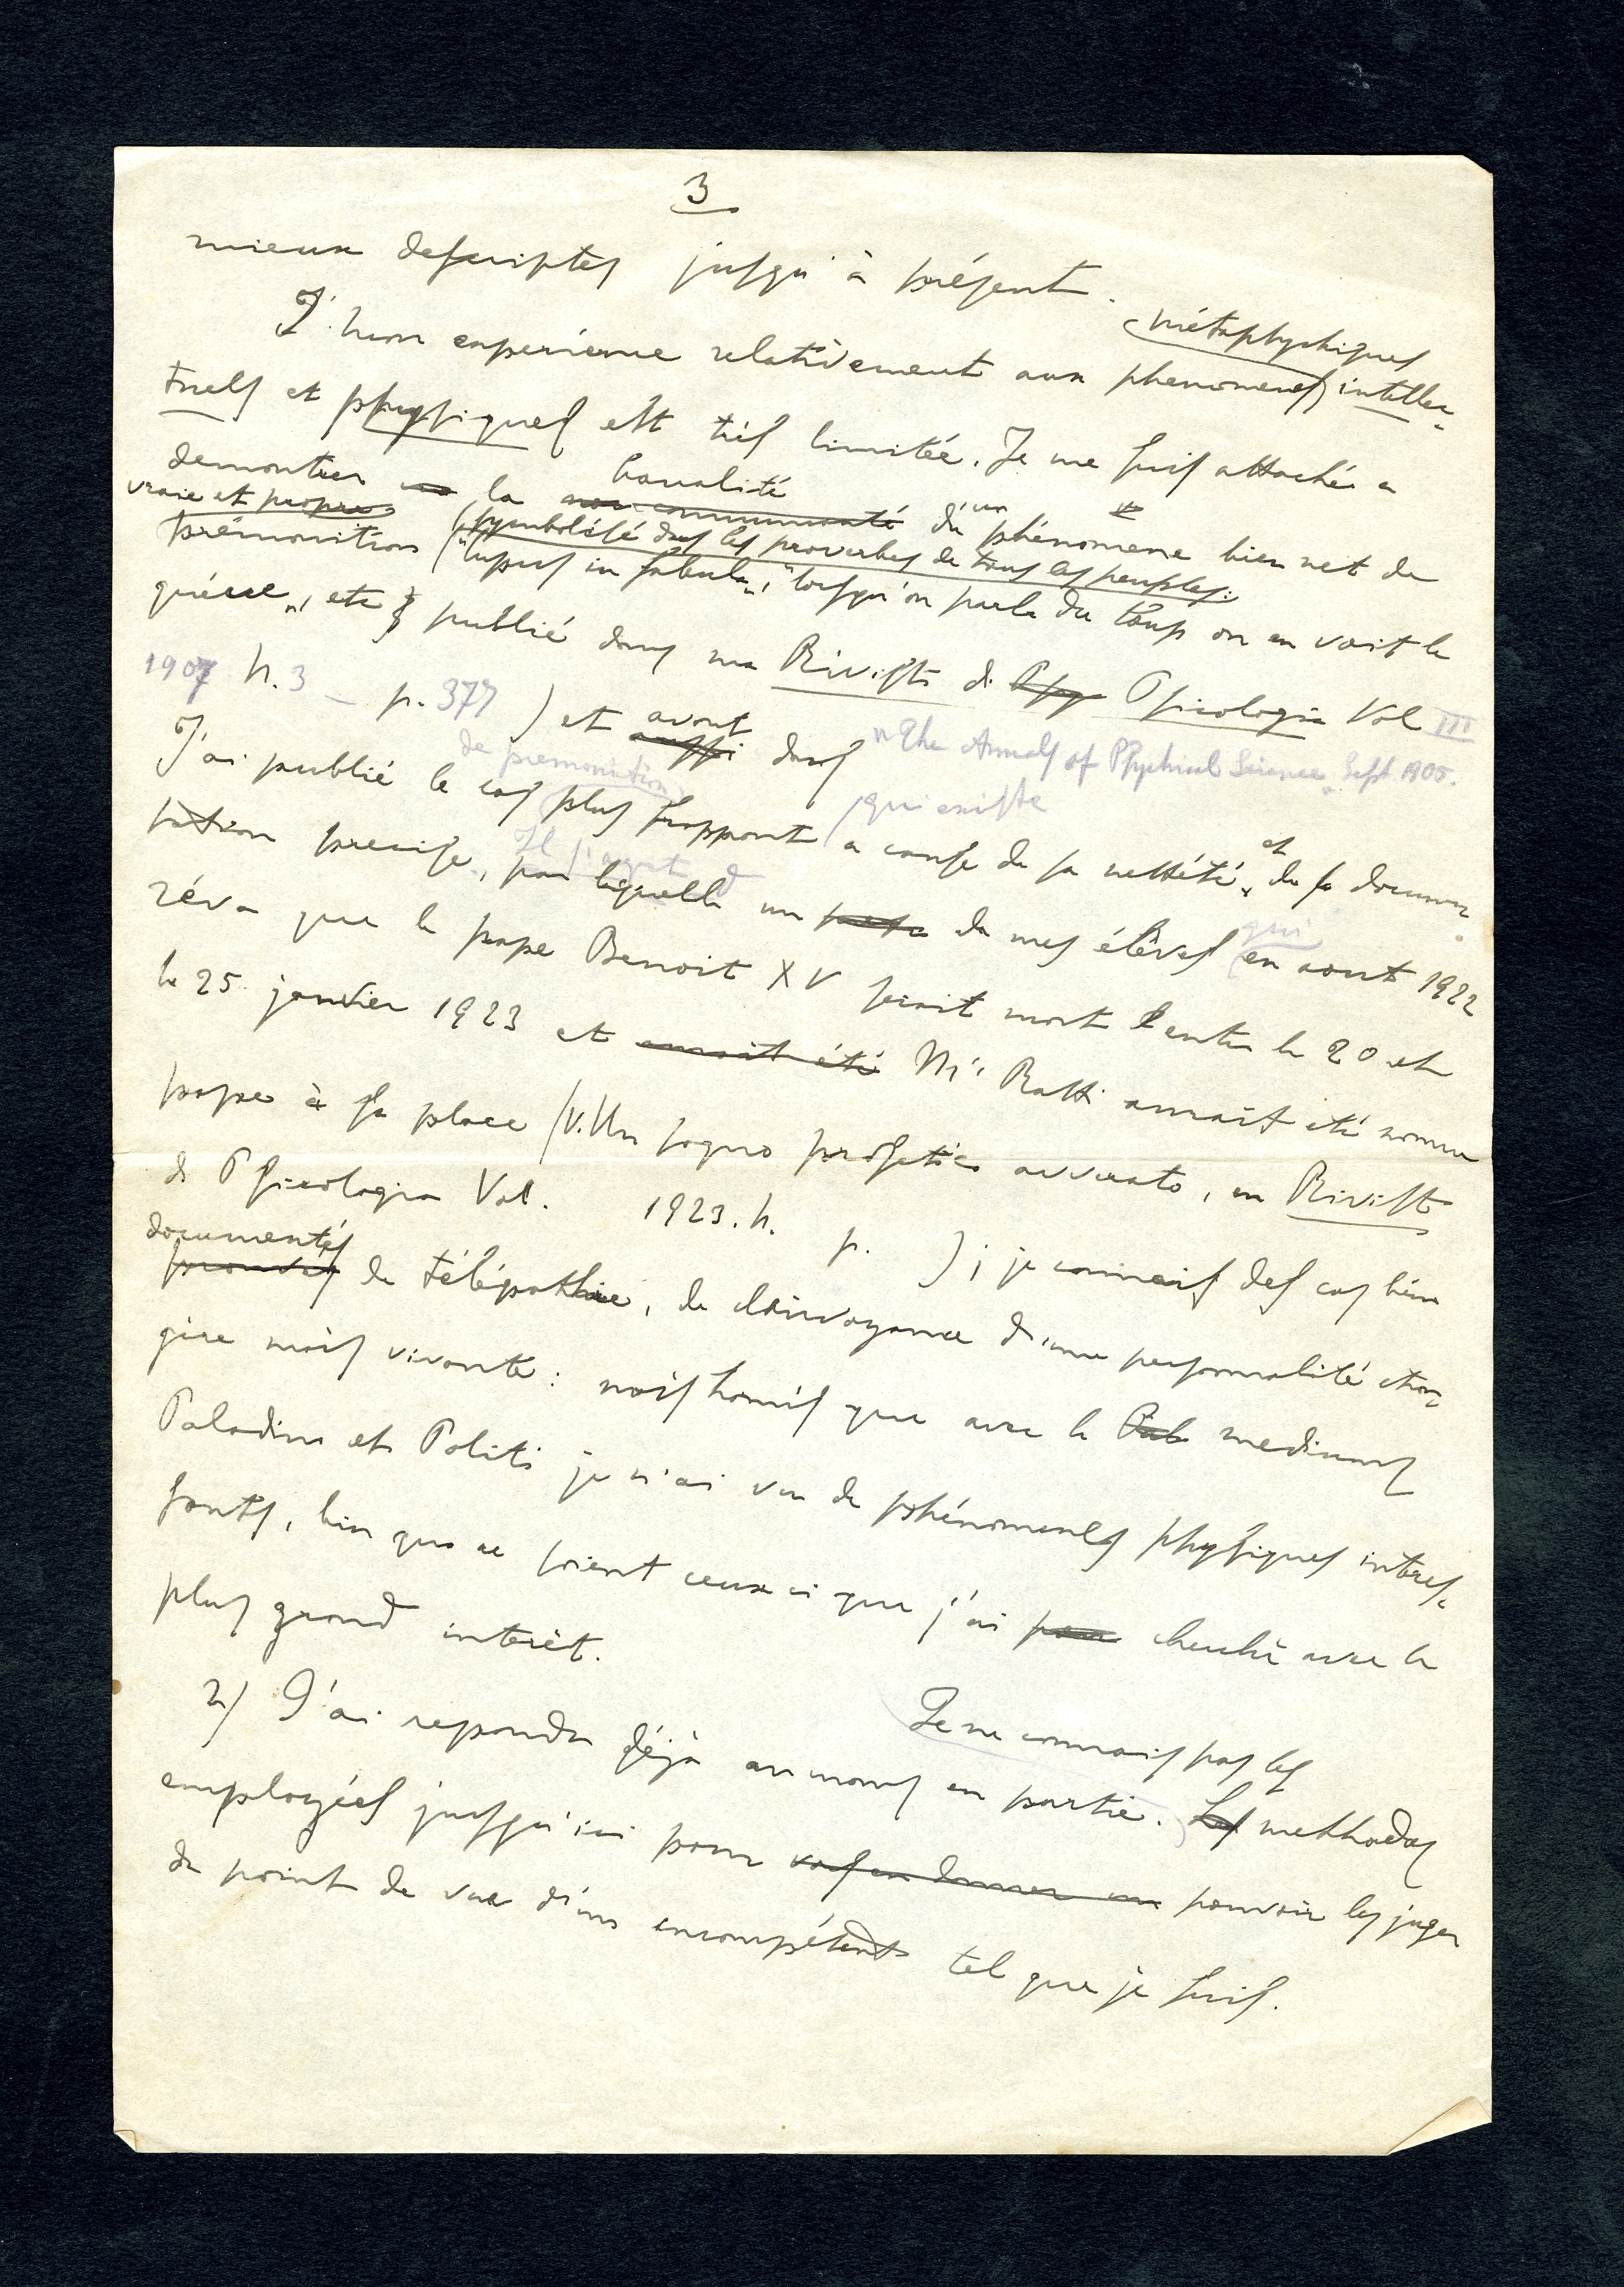 3
mieux descriptes jusqu'à présent.
métaphychiques
J. mon experience relativement aux phenomenes intellec-
tuels et physiques est très limitée. Je me suis attaché a
banalité
demontrer la non communauté d'un phénomene bien net de
vraie et propre
symbolisé dans les proverbes de tous les peuples:
prémonition ("lupus in fabula", "lorsqu'on parle du loup on en voit la
quéue", etc publié dans ma Rivista di Psy Psicologia Vol III
1907 n. 3 – p. 377) et avant aussi dans "The Annals of Psychical Science" Sept. 1905.
de premonition
qui existe
J'ai publié le cas plus frappant a cause de sa nettété et de sa documen-
Il s'agit d
tation precise, par laquelle un de mes élèves qui en aout 1922
réva que le pape Benoit XV serait mort entre le 20 et
le 25 janvier 1923 et aurait été Mr Ratti aurait eté nommé
pape à sa place (V. Un sogno profetico avverato, en Rivista
di Psicologia Vol. 1923. n. p. ); je connais des cas bien
documentés
prouvés de télépathie, de clairvoyance d'une personnalité etran-
gère mais vivante: mais hormis que avec le Pal mediums
Paladino et Politi je n'ai vu de phénomenes physiques intéres-
sants, bien que ce soient ceux ci que j'ai cherché avec le
plus grand interèt.
Je ne connais pas les
2) J'ai repondu déjà au moins en partie. Les methodes
employées jusqu'ici pour vous en donner un pouvoir les juger
du point de vue d'un incompétent tel que je suis.